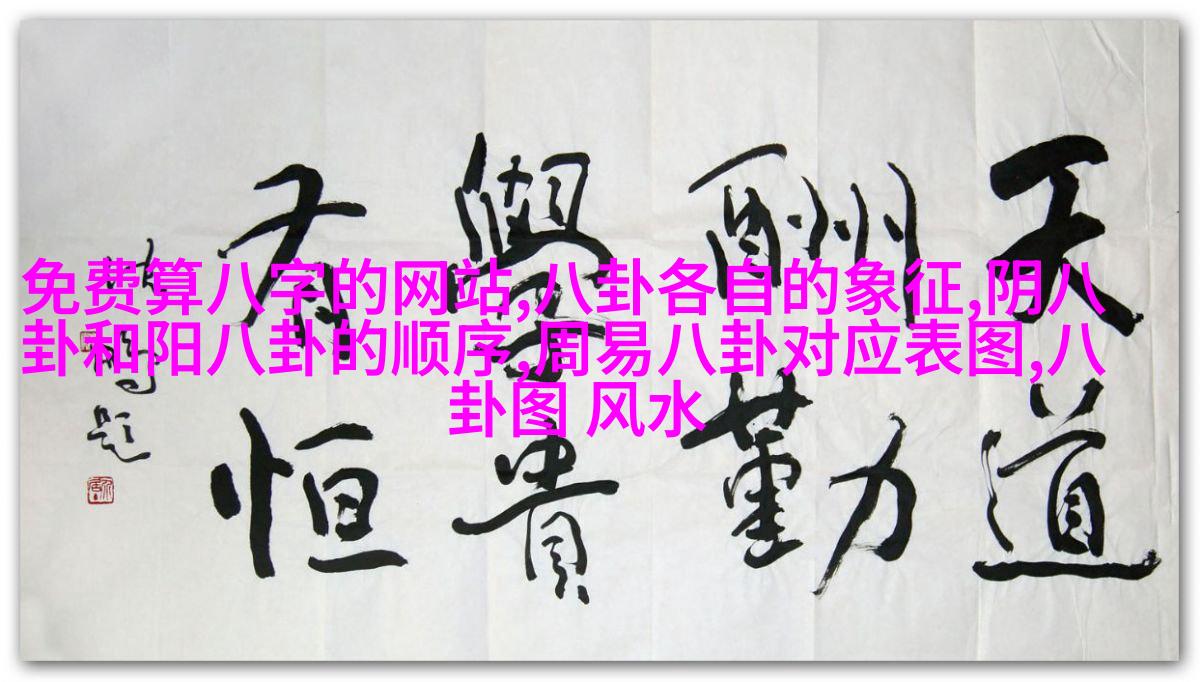 免费算八字的网站,八卦各自的象征,阴八
卦和阳八卦的顺序,周易八卦对应表图,八
卦图 风水
天道
酬勤
學貴
有恒
题